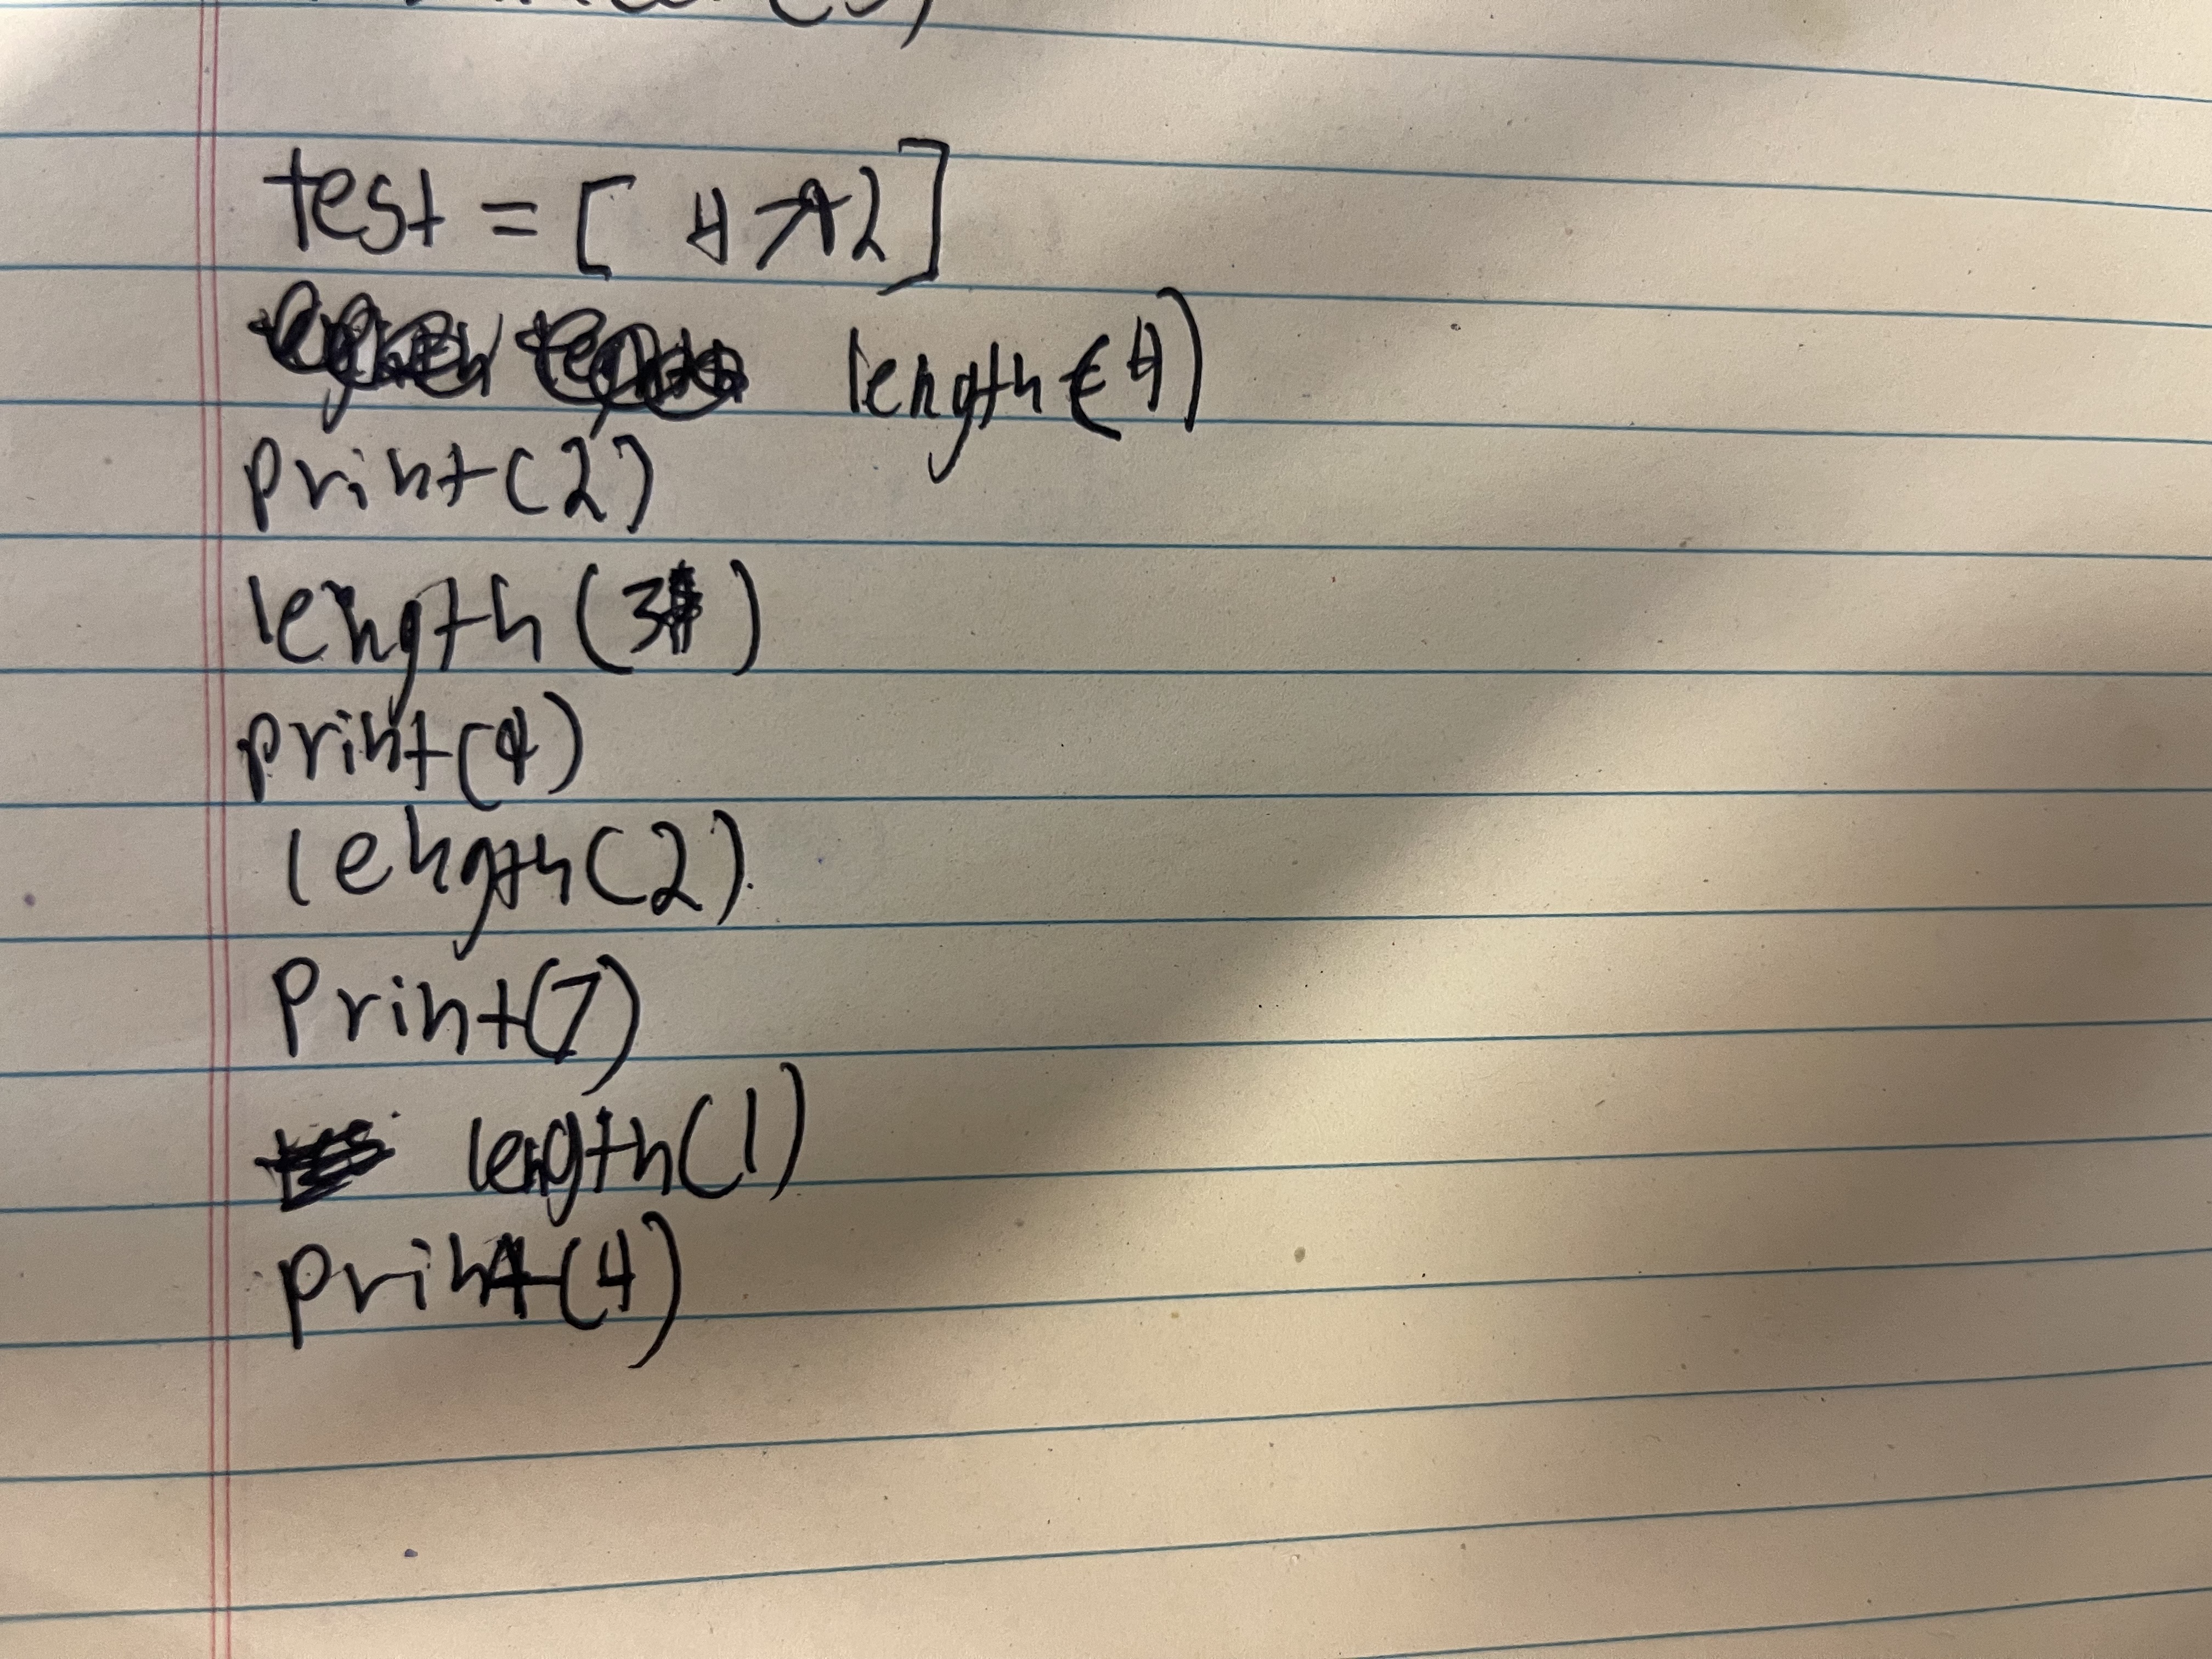 test = [ 4 7 1 2 ]
length (4)
print (2)
length (3)
print (1)
length (2)
print (7)
length (1)
print (4)